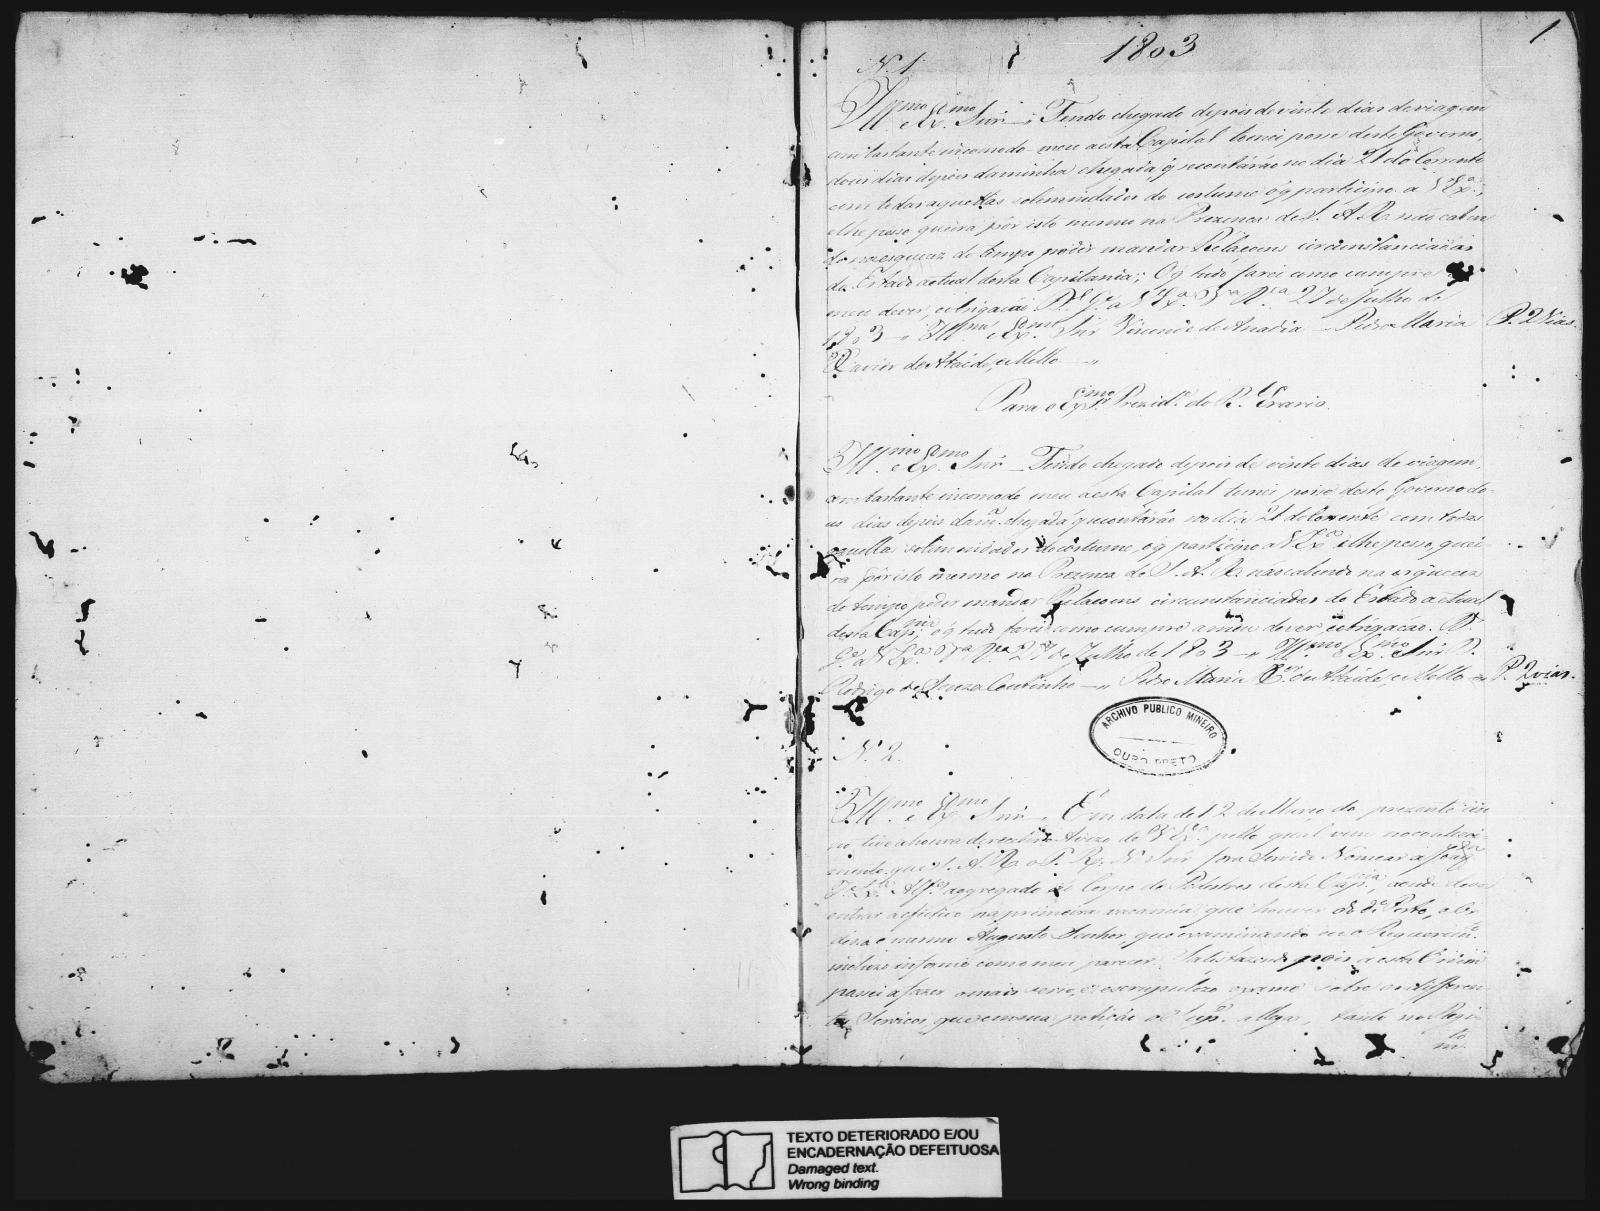 1803
1
N. 1
Ill.mo e Ex.mo Snr. Tendo chegado depois de vinte dias de viagem
com bastante incomodo meu a esta Capital tomei posse deste Governo,
dous dias depois da minha chegada q se contárão no dia 21 do Corrente
com todas aquellas solemnidades do costume o q participo a V Ex.a,
e lhe peço queira por isto mesmo na Prezença de S. A. R. não caben
do na esqueza do tempo poder mandar Relaçoens circunstanciadas
do Estado actual desta Capitania; O q tudo farei como cumpre
meu dever, e obrigação D.s G.e a V Ex.a V.a R.ca 27 de Julho de
1803 Ill.mo e Ex.mo Snr Visconde de Anadia Pedro Maria
Xavier de Ataide, e Mello
P. 2 Vias.
Para o Ex.mo Prezid.e do R.l Erario.
Ill.mo e Ex.mo Snr. Tendo chegado depois de vinte dias de viagem,
com bastante incomodo meu a esta Capital tomei posse deste Governo do-
us dias depois da m.a chegada q se contárão no dia 21 do Corrente com todas
aquellas solemnidades do costume, o q participo a V Ex.a e lhe peço, quei-
ra por isto mesmo na Prezença de S. A. R. não cabendo na esqueza
do tempo poder mandar Relaçoens circunstanciadas do Estado actual
desta Cap.nia; o q tudo farei como cumpre a meu dever, e obrigação. D.s
G.e a V Ex.a V.a R.ca 27 de Julho de 1803 Ill.mo e Ex.mo Snr D.
Rodrigo de Souza Coutinho Pedro Maria X.er de Ataide, e Mello
P. 2 vias.
ARCHIVO PUBLICO MINEIRO
OURO PRETO
N. 2.
Ill.mo e Ex.mo Snr. Em data de 12 de Março do prezente an
no tive a honra de receber o Avizo de V Ex.a pello qual vem no conheci-
mento que S. A. R. o P. R. N. Snr fora Servido Nomear a Joaq.m
Alf.es aggregado ao Corpo de Pedestres desta Cap.nia, aonde deve
entrar a efectivo na primeira vacancia que houver do d.o Posto, e Or-
dena o mesmo Augusto Senhor, que examinando eu o Requerim.to
incluzo informe com o meu parecer. Satisfazendo pois a esta Ordem
passei a fazer o mais serio, e escrupulozo exame sobre os differen
tes Serviços, que em sua petição o Sup.e allega, tanto no Regi-
m.to
TEXTO DETERIORADO E/OU
ENCADERNAÇÃO DEFEITUOSA
Damaged text.
Wrong binding